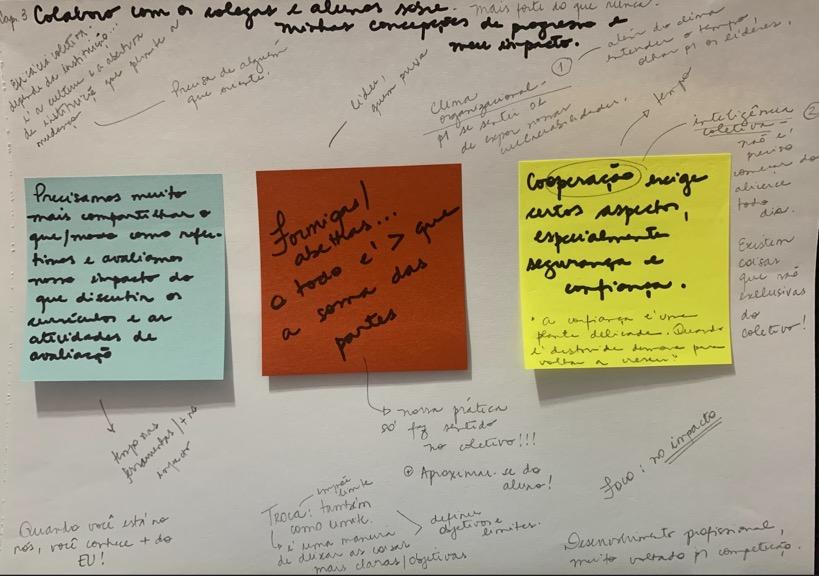 Cap. 3 Colaboro com os colegas e alunos sobre
minhas concepções de progresso e
meu impacto.
mais forte do que nunca.
Eficácia coletiva...
depende da instituição...
é a cultura e a abertura
da instituição que permite a
mudança
Precisa de alguém
que oriente.
Líder,
quem puxa
Clima
organizacional
p/ se sentir ok
de expor nossas
vulnerabilidades.
1
além do clima
entender o tempo,
olhar p/ os líderes,
tempo
inteligência
coletiva
2
não é
preciso
começar do
alicerce
todo
dia.
Existem
coisas
que são
exclusivas
do
coletivo!
Precisamos muito
mais compartilhar o
que/modo como refle-
timos e avaliamos
nosso impacto do
que discutir os
currículos e as
atividades de
avaliação
Formigas/
abelhas...
o todo é > que
a soma das
partes
Cooperação exige
certos aspectos,
especialmente
segurança e
confiança.
"a confiança é uma
planta delicada. Quando
é destruída demora para
voltar a crescer"
tempo nas
ferramentas/+ no
impacto
nossa prática
só faz sentido
no coletivo!!!
Aproximar-se do
aluno!
Foco: no impacto
Quando você está no
nós, você conhece + do
EU!
impõe
limite
Troca: também
como limite.
é uma maneira
de deixar as coisas
mais claras/objetivas
definir
objetivos e
limites.
Desenvolvimento profissional,
muito voltado p/ competição.